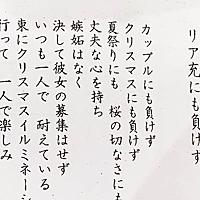 リア充にも負けず
カップルにも負けず
クリスマスにも負けず
夏祭りにも 桜の切なさにも
丈夫な心を持ち
嫉妬はなく
決して彼女の募集はせず
いつも一人で 耐えている
東にクリスマスイルミネーシ
行って 一人で楽しみ